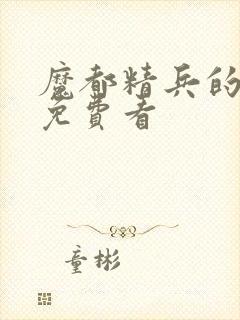 魔都精兵的
免费看
童彬